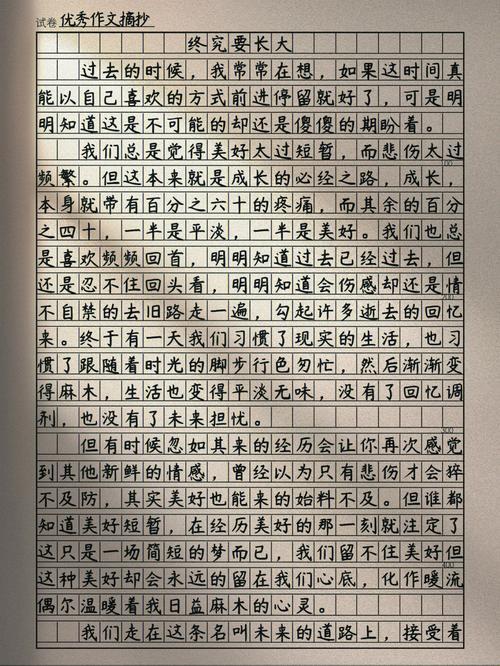 试卷 优秀作文摘抄
终究要长大
过去的时候，我常常在想，如果这时间真
能以自己喜欢的方式前进停留就好了，可是明
明知道这是不可能的却还是傻傻的期盼着。
我们总是觉得美好太过短暂，而悲伤太过
频繁。但这本来就是成长的必经之路，成长，
本身就带有百分之六十的疼痛，而其余的百分
之四十，一半是平淡，一半是美好。我们也总
是喜欢频频回首，明明知道过去已经过去，但
还是忍不住回头看，明明知道会伤感却还是情
不自禁的去旧路走一遍，勾起许多逝去的回忆
来。终于有一天我们习惯了现实的生活，也习
惯了跟随着时光的脚步行色匆忙，然后渐渐变
得麻木，生活也变得平淡无味，没有了回忆调
剂，也没有了未来担忧。
但有时候忽如其来的经历会让你再次感觉
到其他新鲜的情感，曾经以为只有悲伤才会猝
不及防，其实美好也能来的始料不及。但谁都
知道美好短暂，在经历美好的那一刻就注定了
这只是一场简短的梦而已，我们留不住美好但
这种美好却会永远的留在我们心底，化作暖流
偶尔温暖着我日益麻木的心灵。
我们走在这条名叫未来的道路上，接受着
100
200
300
400